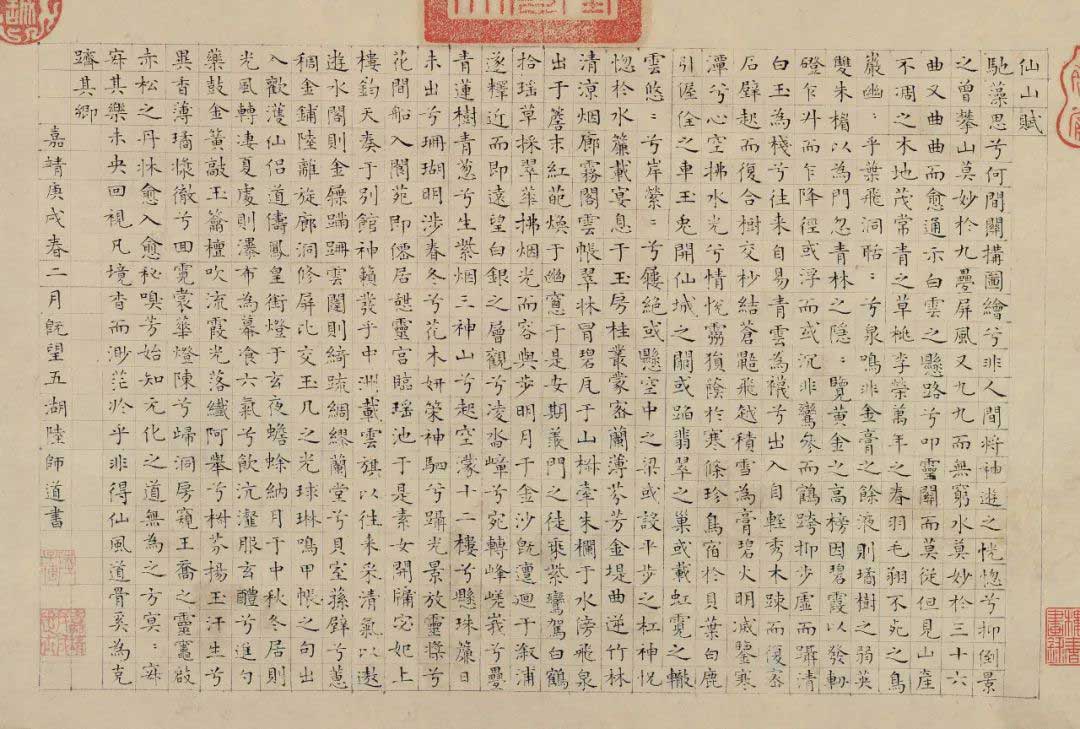 仙山賦
馳藻思兮何間關構圖繪兮非人間將神遊之恍惚兮抑倒景
之曾攀山莫妙於九疊屏風又九九而無窮水莫妙於三十六
曲又曲曲而愈通示白雲之懸路兮叩靈關而莫從但見山崖
不凋之木地茂常青之草桃李榮萬年之春羽毛翔不死之鳥
巖幽〻乎葉飛洞聒〻兮泉鳴非金膏之餘液則璚樹之弱英
雙朱楣以為門忽青林之隱〻覽黃金之高榜因碧霞以發軔
磴乍升而乍降徑或浮而或沉非鸞參而鶴跨抑步虛而躡清
白玉為棧兮往來自易青雲為襪兮出入自輕秀木踈而復密
石壁起而復合樹交杪結蒼鼯飛越積雪為膏碧火明滅鑒寒
潭兮心空拂水光兮情悅霧猿蔭於寒條珍鳥宿於貝葉白鹿
引偓佺之車玉兔開仙城之關或蹋翡翠之巢或載虹霓之轍
雲悠〻兮岸縈〻兮鏤絕或懸空中之梁或設平步之杠神恍
惚於水簾載宴息于玉房桂叢蒙密蘭薄芬芳金堤曲逆竹林
清涼烟廊霧閣雲帳翠牀冒碧瓦于山椒牽朱欄于水傍飛泉
出于簷末紅葩煥于幽窻于是安期羨門之徒乘紫鸞駕白鶴
拾瑶草採翠華拂烟光而容與步明月于金沙旣邅迴于溆浦
遂釋近而即遠望白銀之層觀兮凌峇嶂兮宛轉峰嵯峩兮疊
青蓮樹青葱兮生紫烟三神山兮起空濛十二樓兮懸珠簾日
未出兮珊瑚明涉春冬兮花木妍策神駟兮躡光景放靈槎兮
花間船入閬苑即僊居憇靈宮臨瑶池于是素女開牖宓妃上
樓鈞天奏于別館神籟發乎中洲載雲旗以往来采清氣以遨
遊水閣則金鏁蹁跚雲闥則綺疏綢繆蘭堂兮貝室蓀壁兮蕙
稠金鋪陸離旋廊洞修屏比交玉几之光球琳鳴甲帳之句出
入歡濩仙侶道儔鳳皇銜燈于玄夜蟾蜍納月于中秋冬居則
光風轉淒夏處則瀑布為幕飡六氣兮飲沆瀣服玄醴兮進勺
藥鼓金簧敲玉籥檀吹流霞光落纖阿舉兮椒芬揚玉汗生兮
異香薄璚漿徹兮回霓裳華燈陳兮歸洞房窺王喬之靈竈啟
赤松之丹牀愈入愈秘嗅芳始知元化之道無為之方冥〻寐
寐其樂未央回視凡境杳而渺茫於乎非得仙風道骨奚為克
躋其鄉
嘉靖庚戌春二月旣望五湖陸師道書